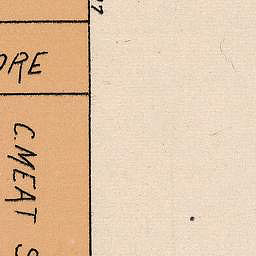 ORE
C. MEAT S